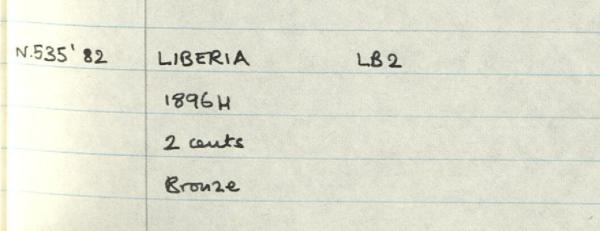 N.535'82 LIBERIA LB2
1896H
2 cents
Bronze